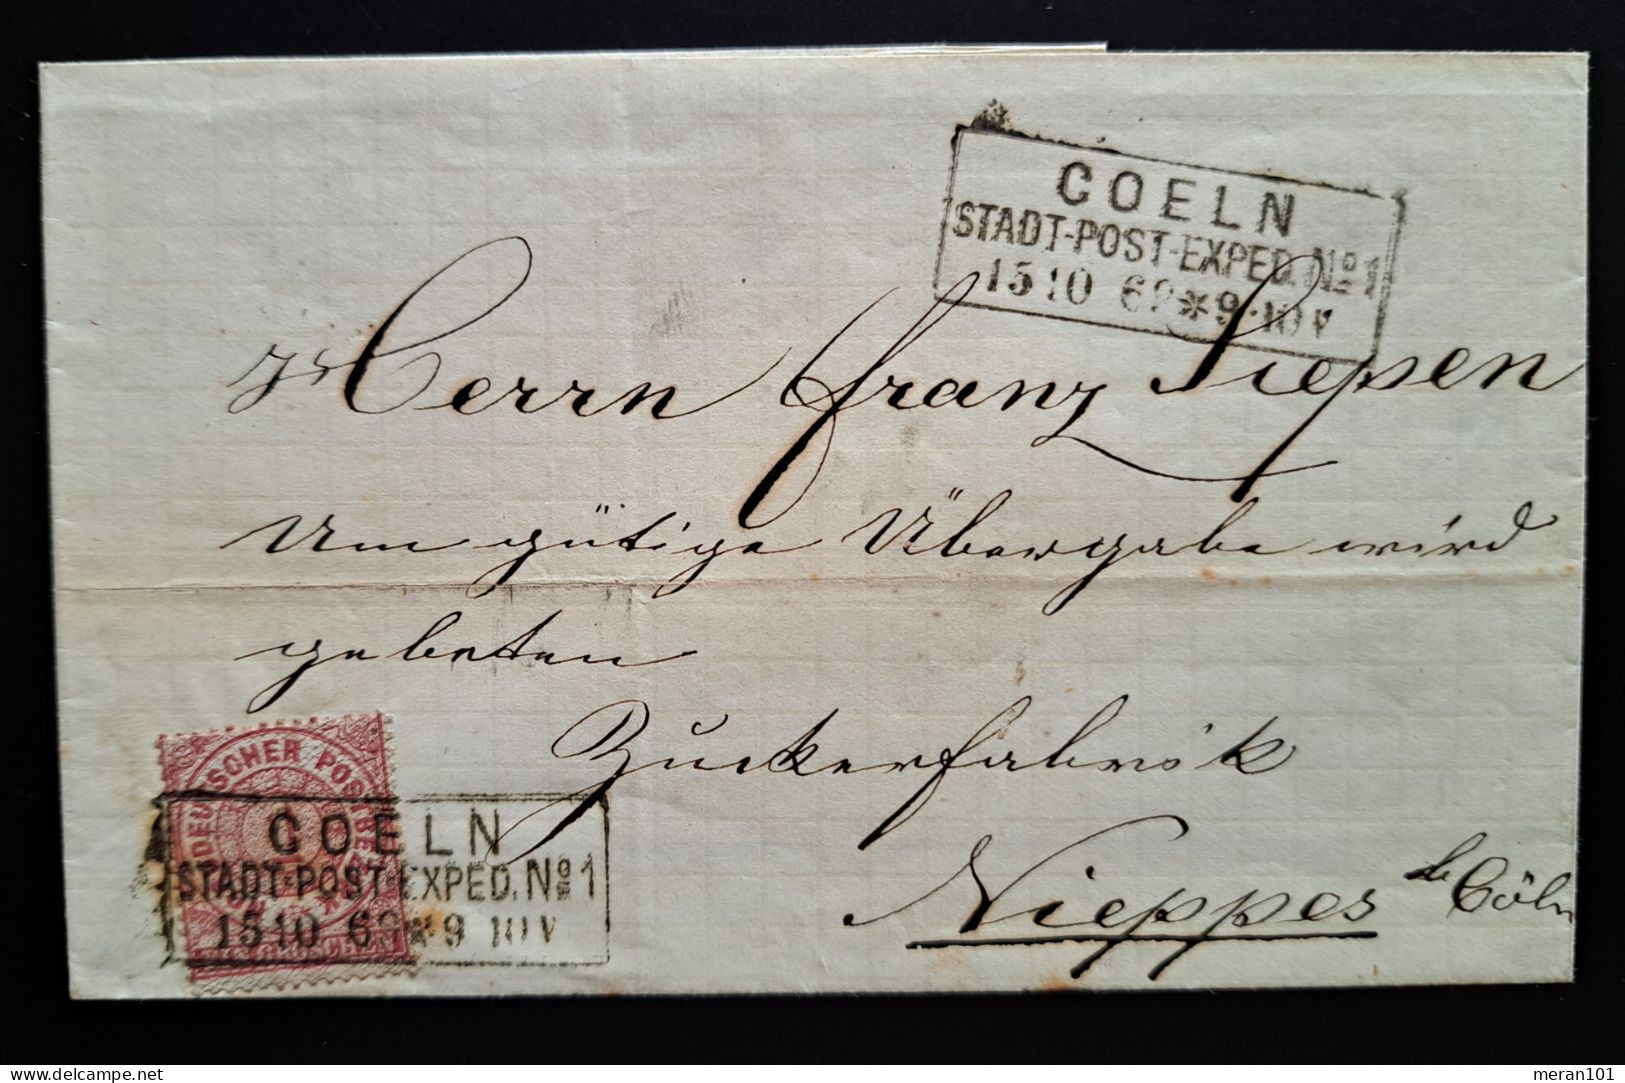 COELN
STADT-POST-EXPED. No 1
15 10 69 * 9-10 V
Herrn Franz Siepen
Um gütige Übergabe wird
gebeten
Zuckerfabrik
Nieppes b Cöln
DEUTSCHER POSTBEZIRK
1
GROSCHEN
COELN
STADT-POST-EXPED. No 1
15 10 69 * 9 10 V
delcampe.net
meran101